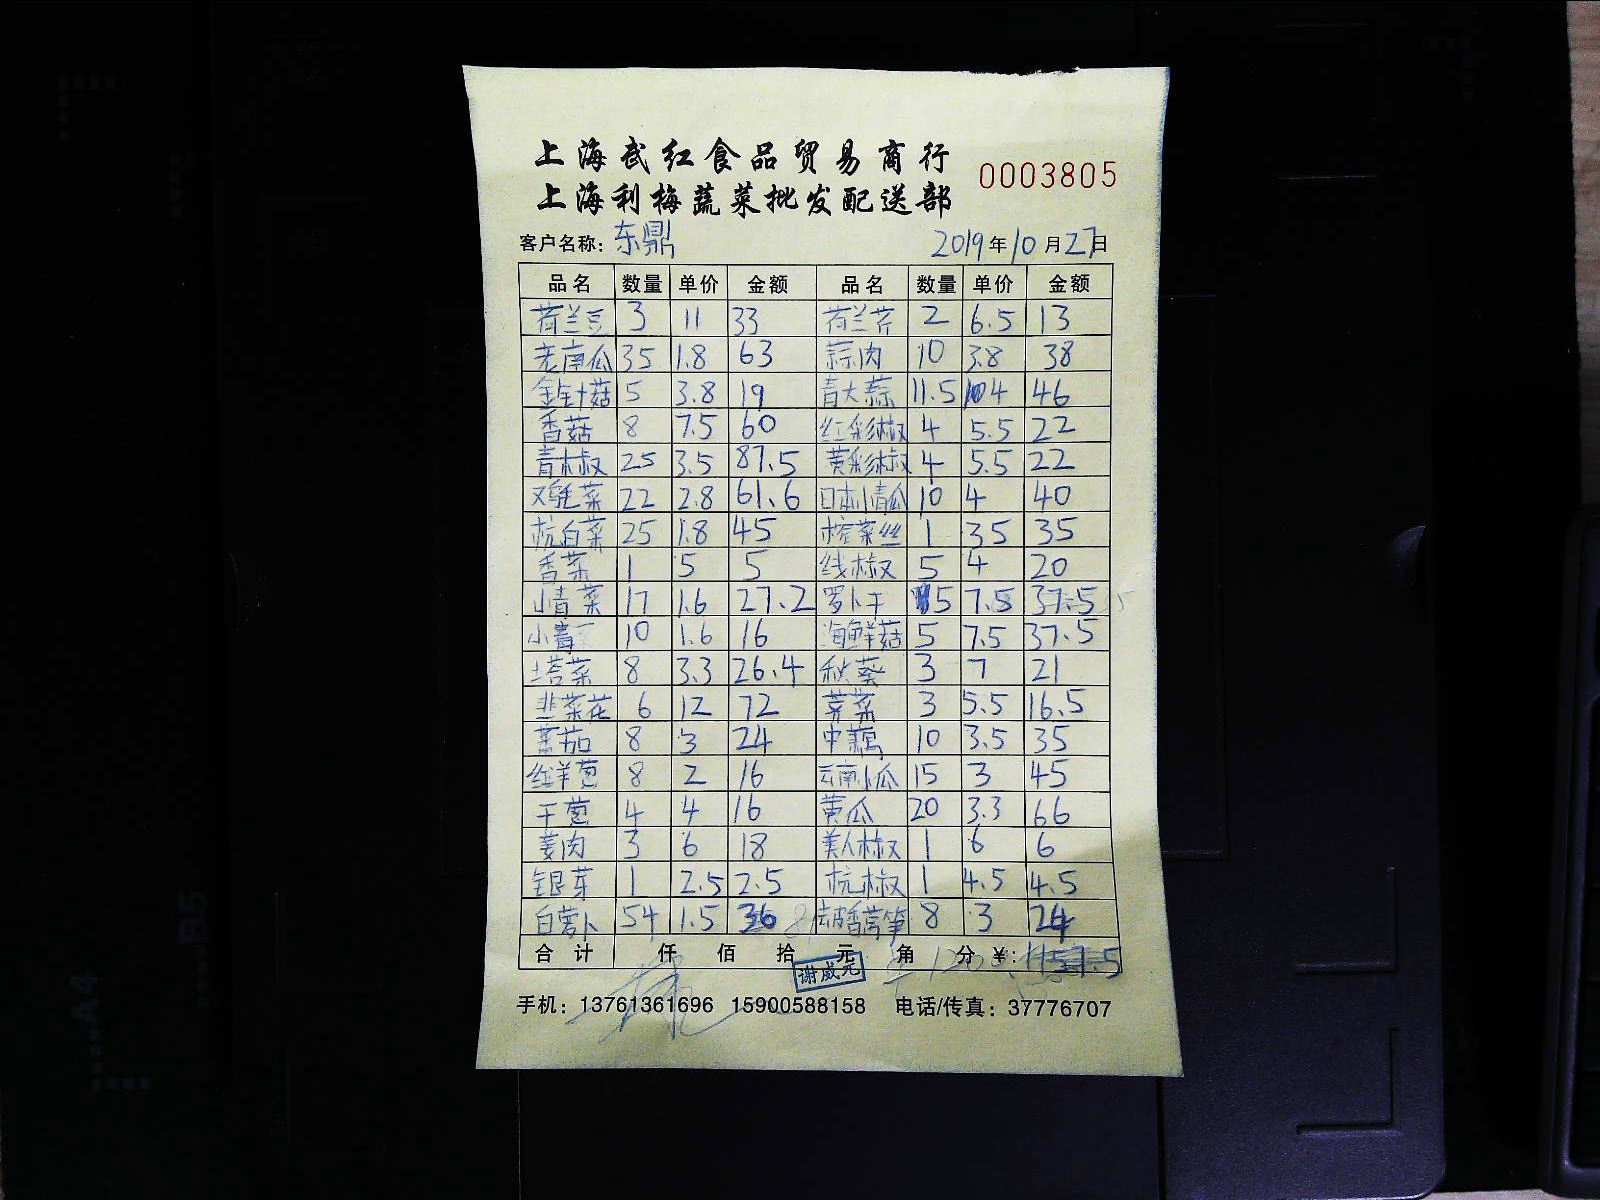 上海武红食品贸易商行
0003805
上海利梅蔬菜批发配送部
客户名称：东鼎 2019年10月27日
品名 数量 单价 金额 品名 数量 单价 金额
荷兰豆 3 11 33 荷兰芹 2 6.5 13
老南瓜 35 1.8 63 蒜肉 10 3.8 38
金针菇 5 3.8 19 青大蒜 11.5 4 46
香菇 8 7.5 60 红彩椒 4 5.5 22
青椒 25 3.5 87.5 黄彩椒 4 5.5 22
鸡毛菜 22 2.8 61.6 日本小青瓜 10 4 40
杭白菜 25 1.8 45 榨菜丝 1 35 35
香菜 1 5 5 线椒 5 4 20
小青菜 17 1.6 27.2 罗卜干 5 7.5 37.5
小青 10 1.6 16 海鲜菇 5 7.5 37.5
塔菜 8 3.3 26.4 秋葵 3 7 21
韭菜花 6 12 72 芽菜 3 5.5 16.5
蕃茄 8 3 24 中藕 10 3.5 35
红洋葱 8 2 16 云南小瓜 15 3 45
干葱 4 4 16 黄瓜 20 3.3 66
姜肉 3 6 18 美人椒 1 6 6
银芽 1 2.5 2.5 杭椒 1 4.5 4.5
白萝卜 54 1.5 去皮香莴笋 8 3 24
合计 仟 佰 拾 元 角 分 ￥:
谢威元
手机：13761361696 15900588158 电话/传真：37776707